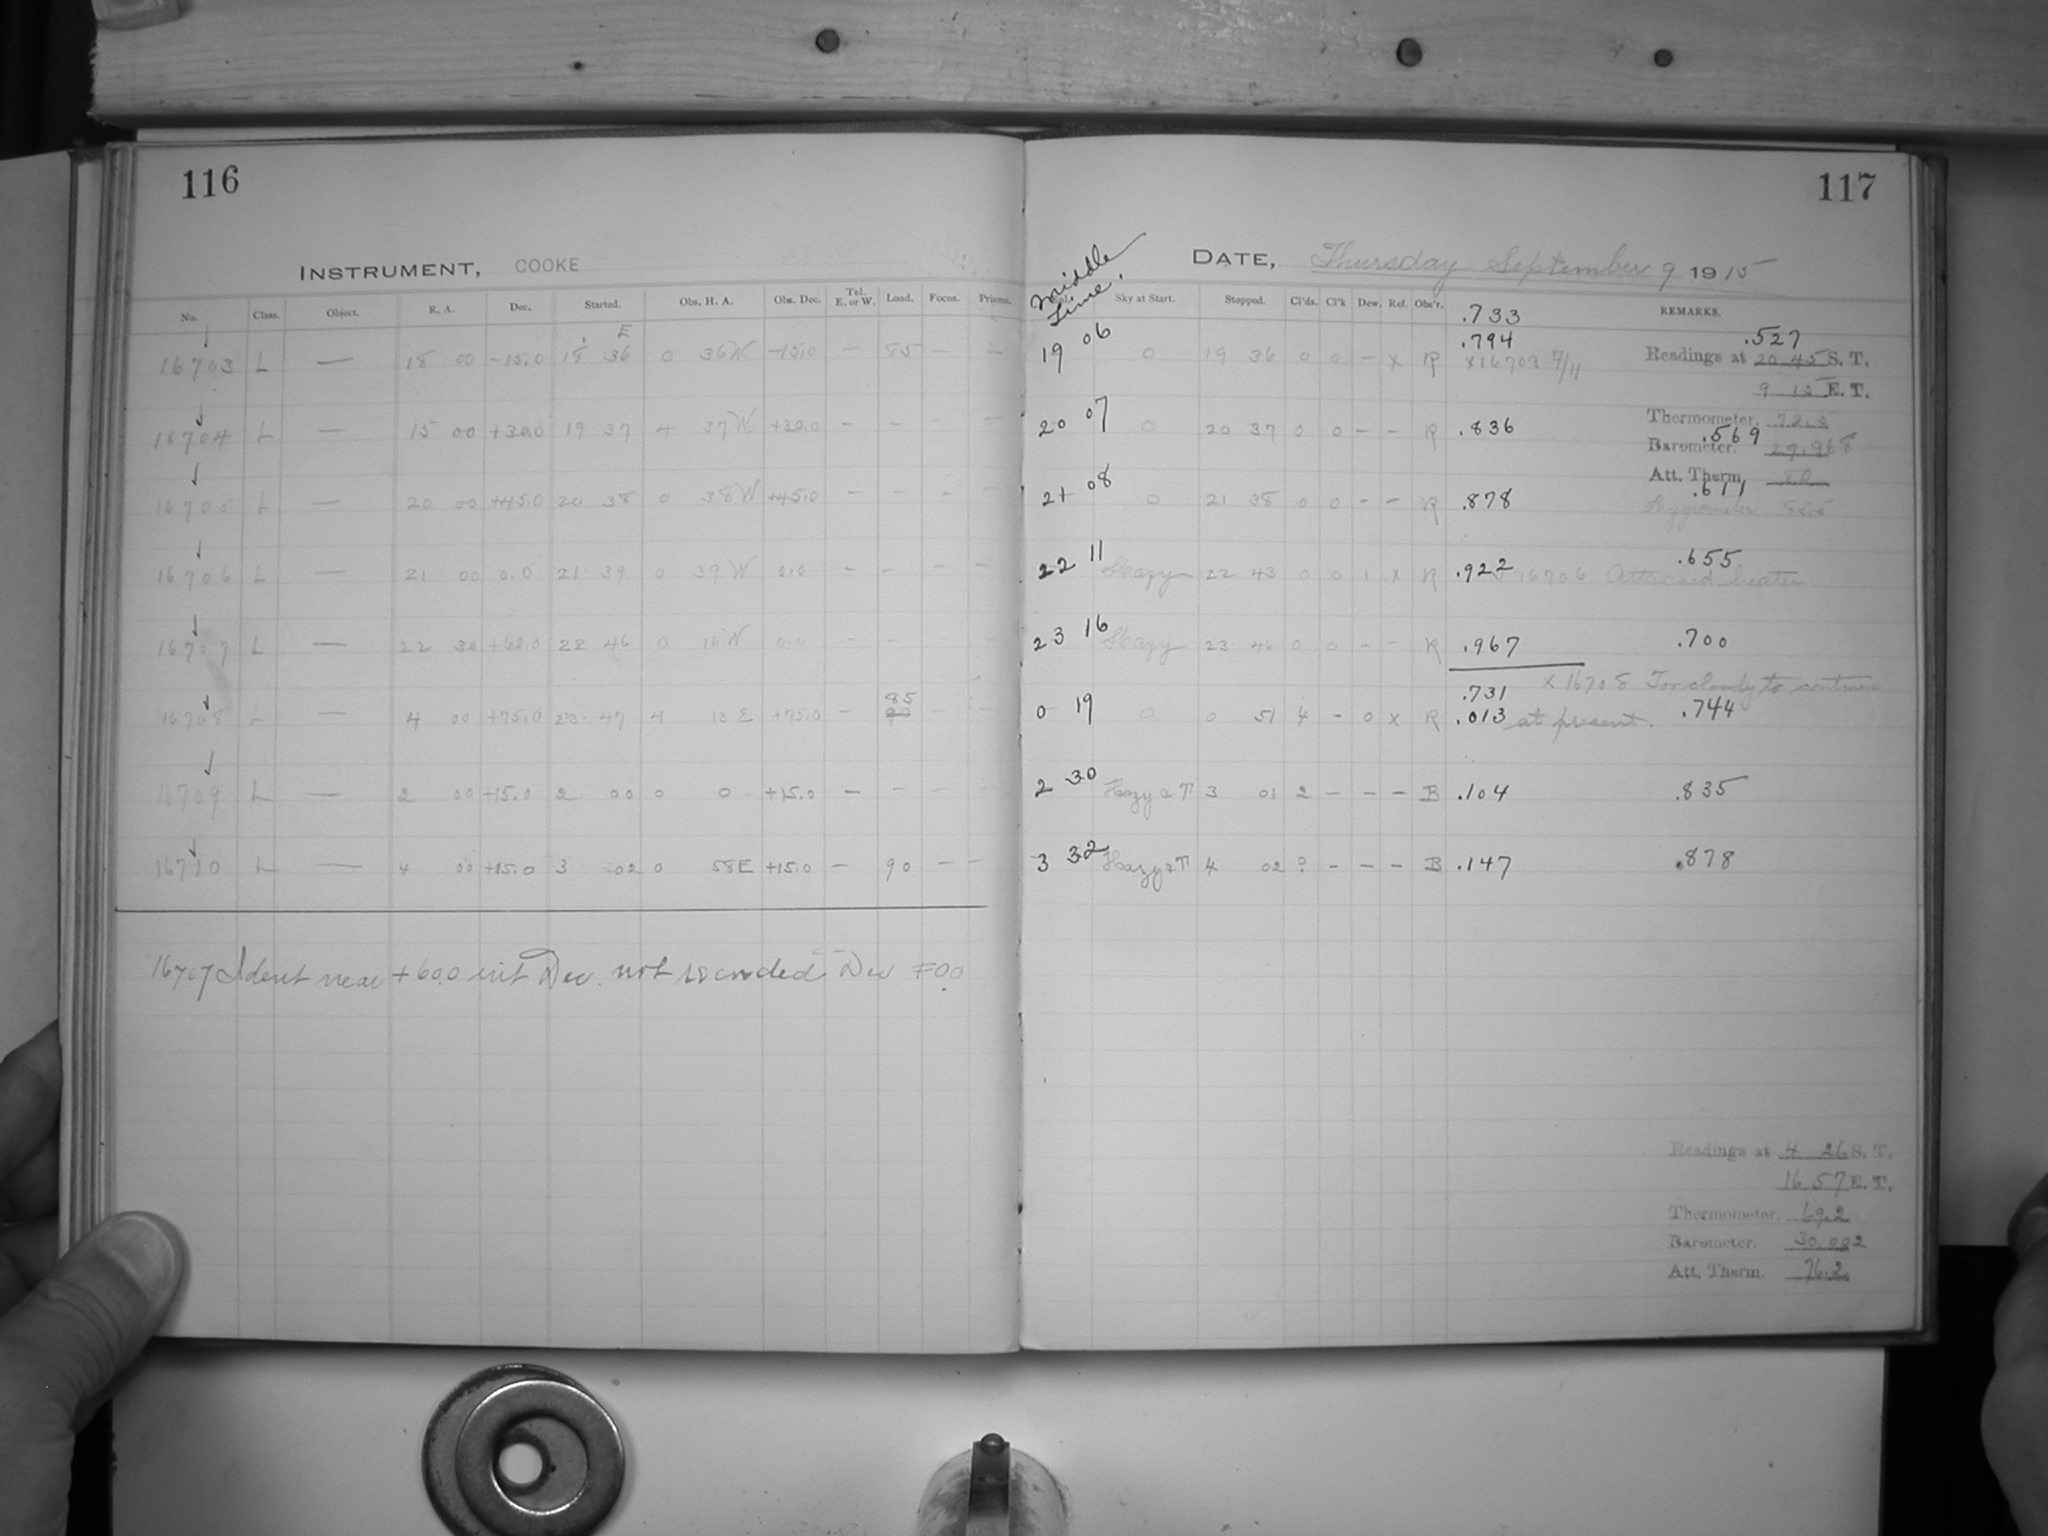 116
INSTRUMENT, COOKE
No. Class. Object. R. A. Dec. Started. Obs. H. A. Obs. Dec. Tel. E. or W. Load. Focus. Prisms.
16703 L — 18 00 -15.0 18 36 E 0 36 W -15.0 — 85 — —
16704 L — 15 00 +30.0 19 37 4 37 W +30.0 — — — —
16705 L — 20 00 +45.0 20 38 0 38 W +45.0 — — — —
16706 L — 21 00 0.0 21 39 0 39 W 0.0 — — — —
16707 L — 22 30 +60.0 22 46 0 16 W 0.0 — — — —
16708 L — 4 00 +75.0 23 47 4 13 E +75.0 — 85 — —
16709 L — 2 00 +15.0 2 00 0 0 +15.0 — — — —
16710 L — 4 00 +15.0 3 02 0 58 E +15.0 — 90 — —
16707 Ident near +60.0 Dec. not recorded Dec 0.0
117
DATE, Thursday September 9 1915
Middle Time. Sky at Start. Stopped. Cl'ds. Cl'k Dew. Ref. Obs'r. .733 REMARKS.
19 06 0 19 36 0 0 — x R .794 x 16703 .527
Readings at 20 45 S. T.
9 15 E. T.
20 07 0 20 37 0 0 — — R .836 .569
Thermometer. 72.5
Barometer. 29.968
Att. Therm. 80
21 08 0 21 38 0 0 — — R .878 .611
Hygrometer
22 11 Hazy 22 43 0 0 1 x R .922 16706 Attached heater .655
23 16 Hazy 23 46 0 0 — — R .967 .700
.731 x 16708 Too cloudy to continue
0 19 0 0 51 4 — 0 x R .013 at present. .744
2 30 Hazy & T 3 01 2 — — — B .104 .835
3 32 Hazy & T 4 02 ? — — — B .147 .878
Readings at 4 26 S. T.
16 57 E. T.
Thermometer. 69.2
Barometer. 30.002
Att. Therm. 76.2